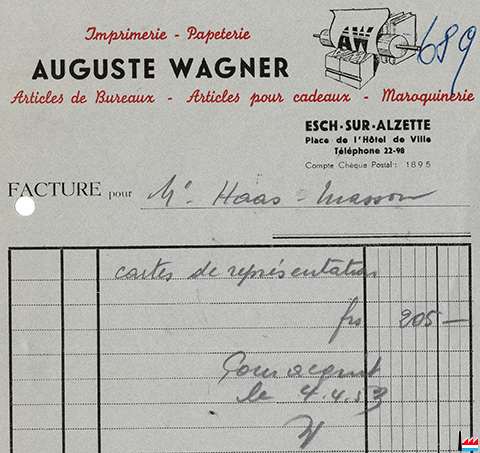 Imprimerie - Papeterie
AW
689
AUGUSTE WAGNER
Articles de Bureaux - Articles pour cadeaux - Maroquinerie
ESCH-SUR-ALZETTE
Place de l'Hôtel de Ville
Téléphone 22-98
Compte Chèque Postal: 1895
FACTURE pour Mr Haas-Masson
cartes de représentation
frs 205 —
Pour acquit
le 4.4.53